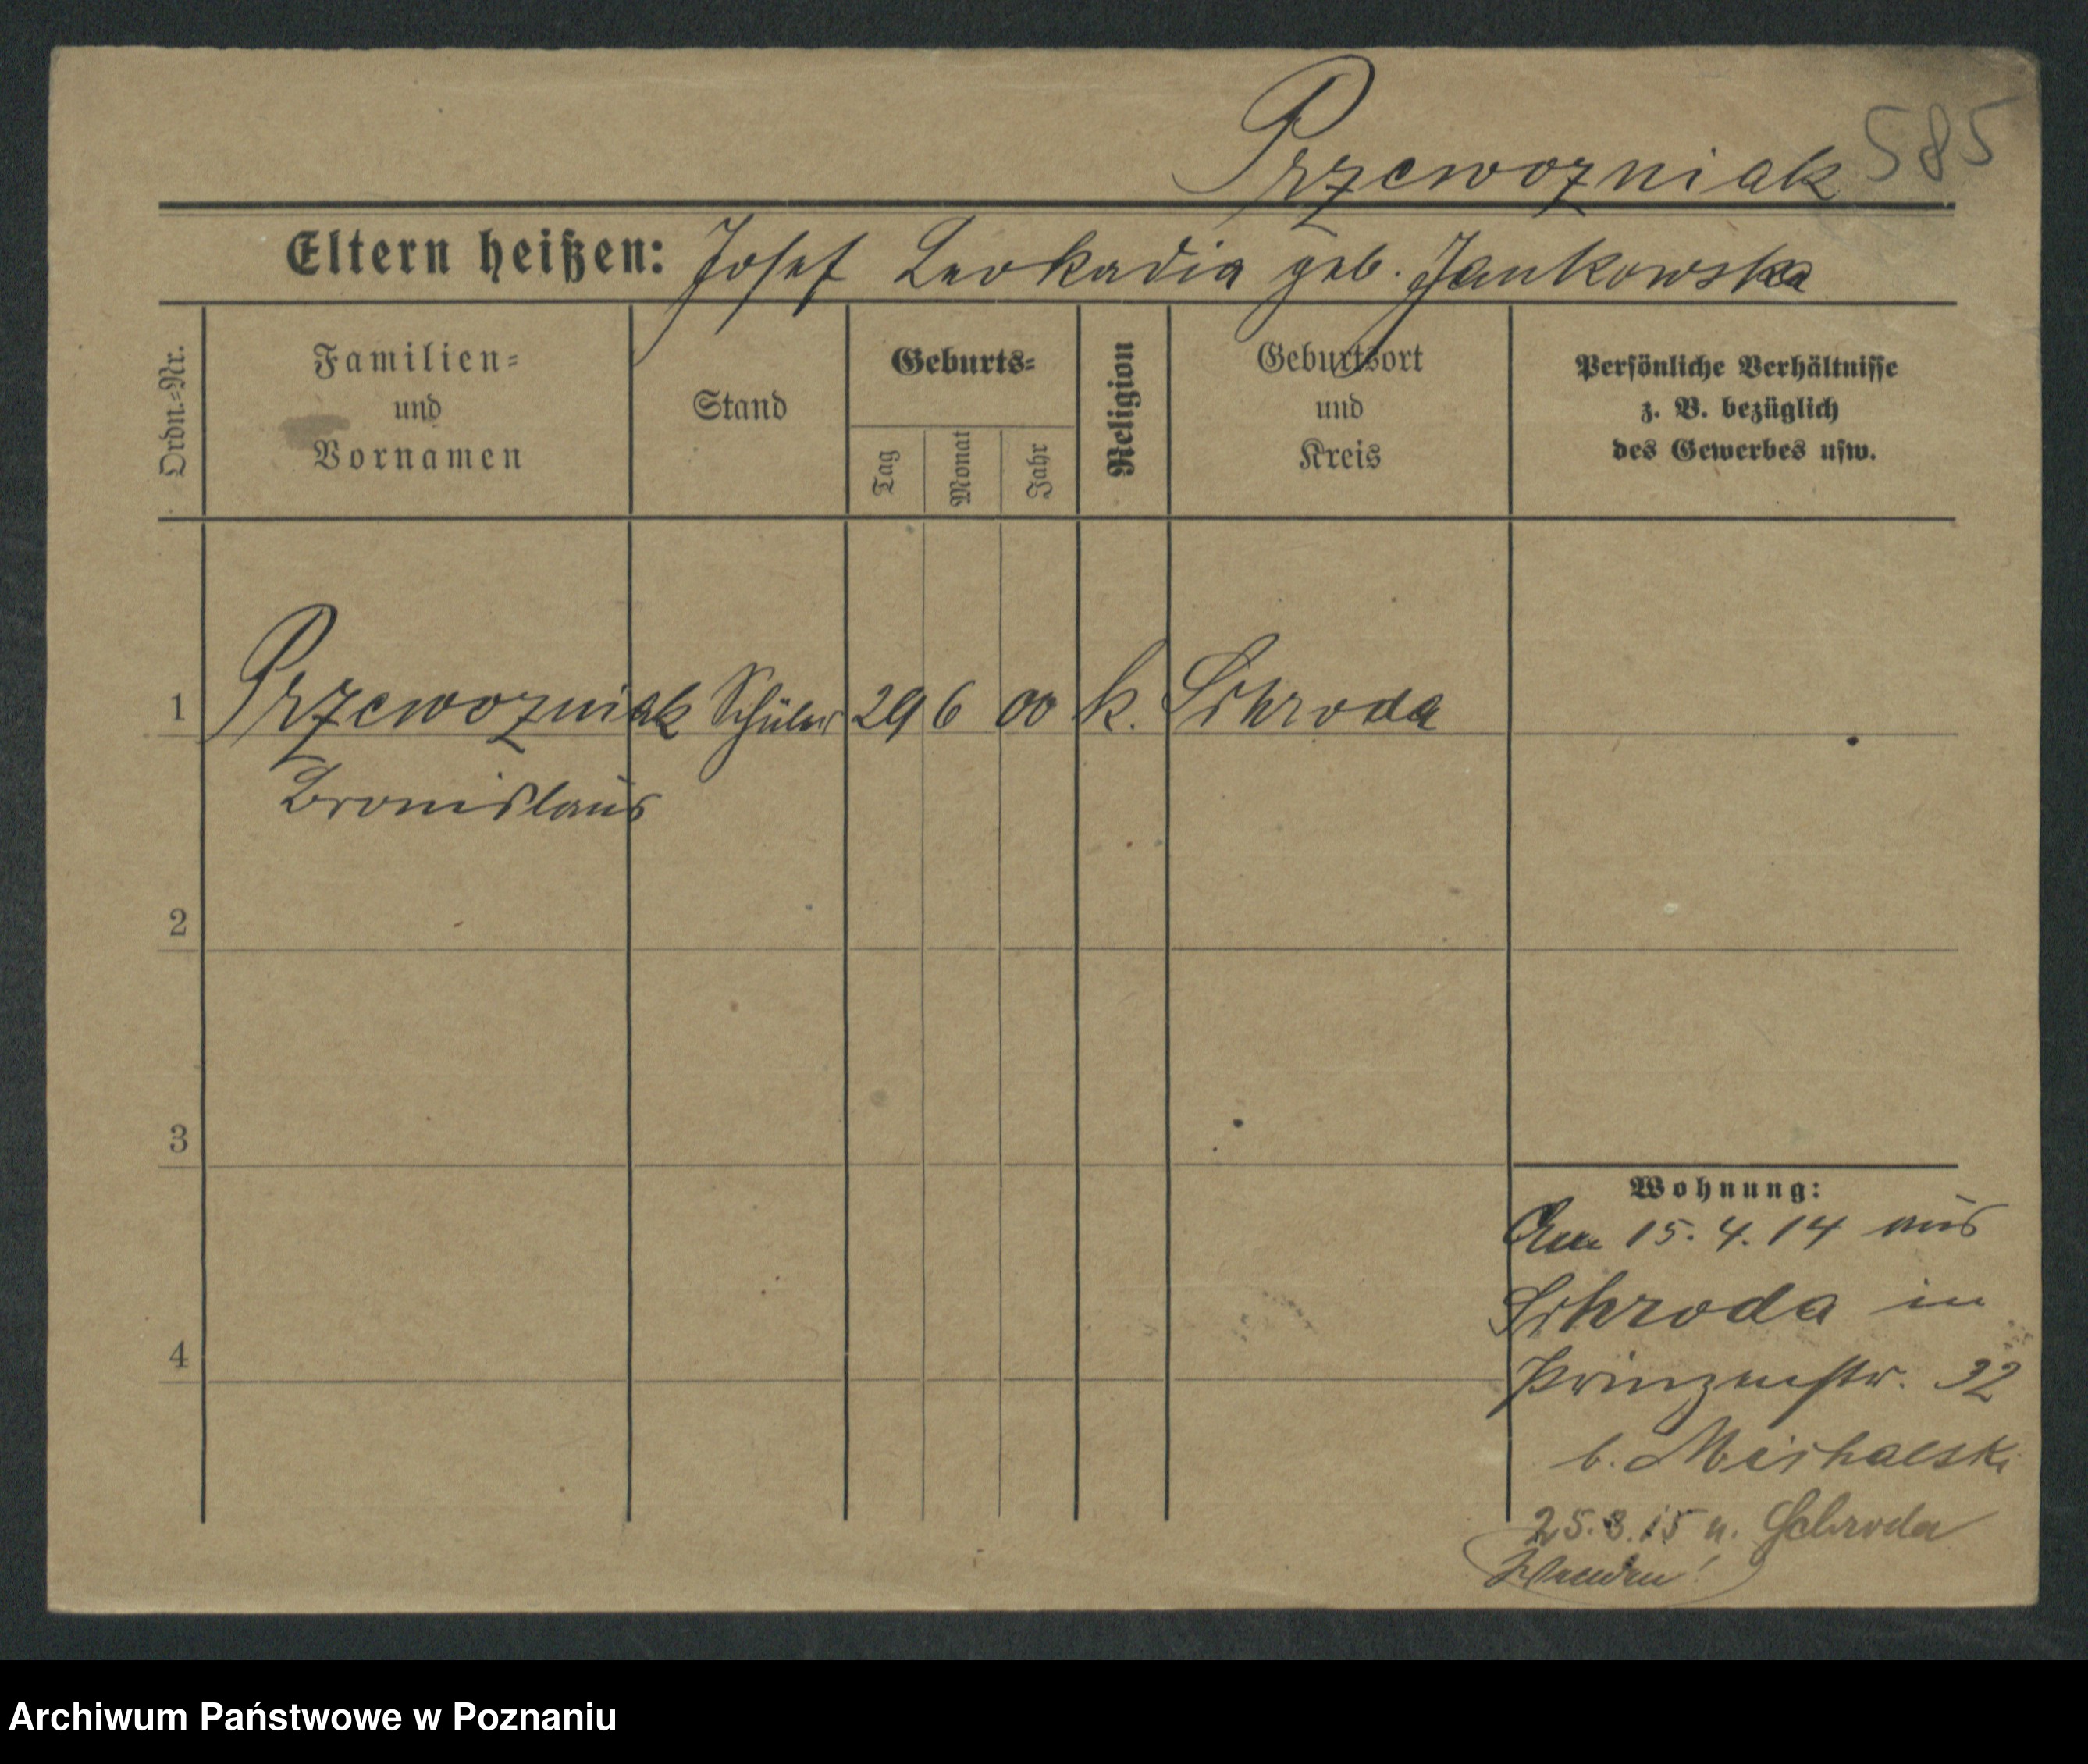 Przewozniak 585
Eltern heißen: Josef Leokadia geb. Jankowska
Ordn.=Nr.
Familien=
und
Vornamen
Stand
Geburts=
Tag
Monat
Jahr
Religion
Geburtsort
und
Kreis
Persönliche Verhältnisse
z. B. bezüglich
des Gewerbes usw.
1 Przewozniak Schüler 29 6 00 k. Schroda
Bronislaus
2
3
4
Wohnung:
Am 15. 4. 14 aus
Schroda in
Prinzenstr. 32
b. Michalski
25.3.15 n. Schroda
Wenden!
Archiwum Państwowe w Poznaniu